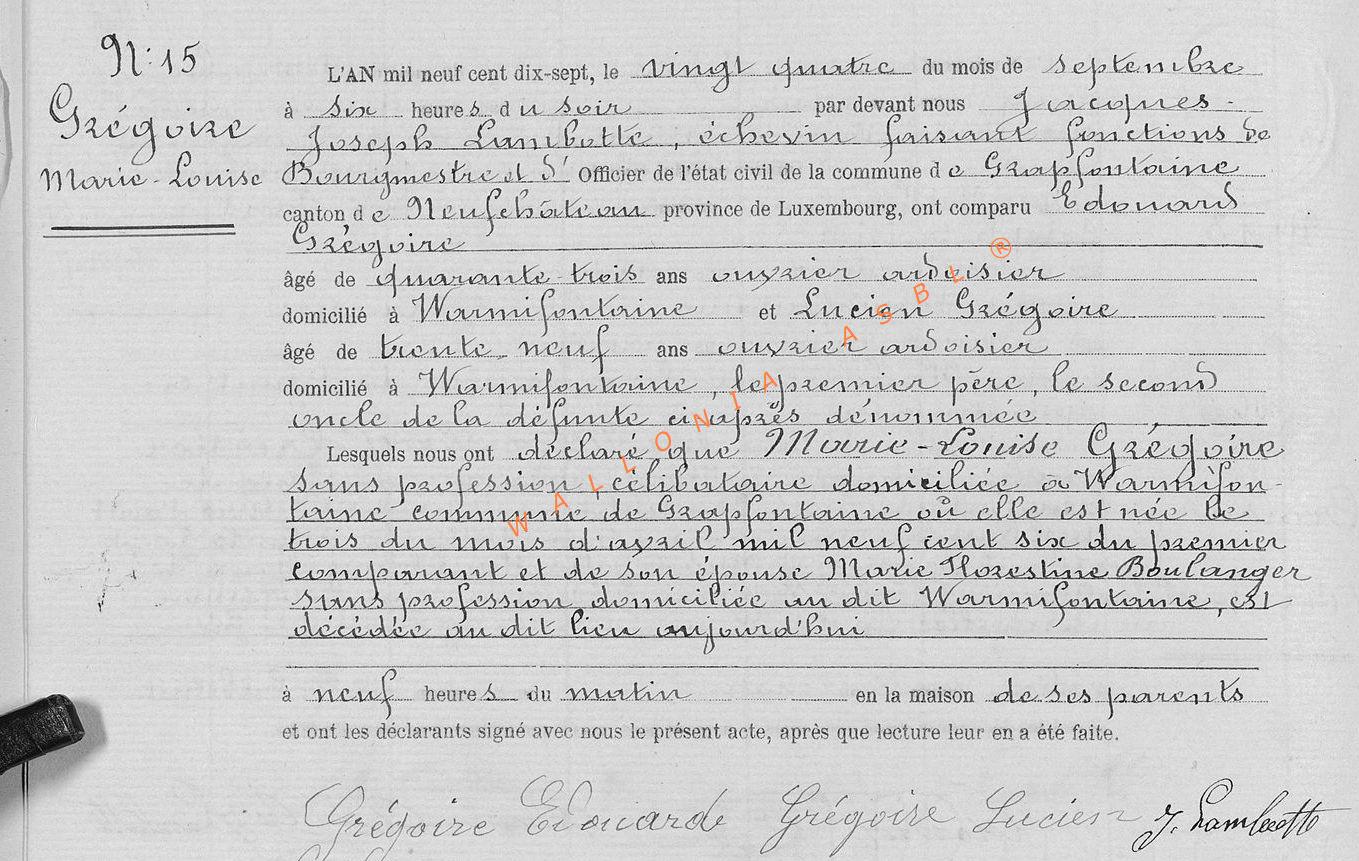 N: 15
Grégoire
Marie-Louise
L'AN mil neuf cent dix-sept, le vingt quatre du mois de septembre
à six heures du soir par devant nous Jacques-
Joseph Lambotte, échevin faisant fonctions de
Bourgmestre et d' Officier de l'état civil de la commune de Grapfontaine
canton de Neufchâteau province de Luxembourg, ont comparu Edouard
Grégoire
âgé de quarante-trois ans ouvrier ardoisier
domicilié à Warmifontaine et Lucien Grégoire
âgé de trente-neuf ans ouvrier ardoisier
domicilié à Warmifontaine, le premier père, le second
oncle de la défunte ci après dénommée
Lesquels nous ont déclaré que Marie-Louise Grégoire
sans profession, célibataire domiciliée à Warmifon-
taine commune de Grapfontaine où elle est née le
trois du mois d'avril mil neuf cent six du premier
comparant et de son épouse Marie Florestine Boulanger
sans profession domiciliée au dit Warmifontaine, est
décédée au dit lieu aujourd'hui
à neuf heures du matin en la maison de ses parents
et ont les déclarants signé avec nous le présent acte, après que lecture leur en a été faite.
Grégoire Edouard Grégoire Lucien J. Lambotte
WALLONIA ASBL ®